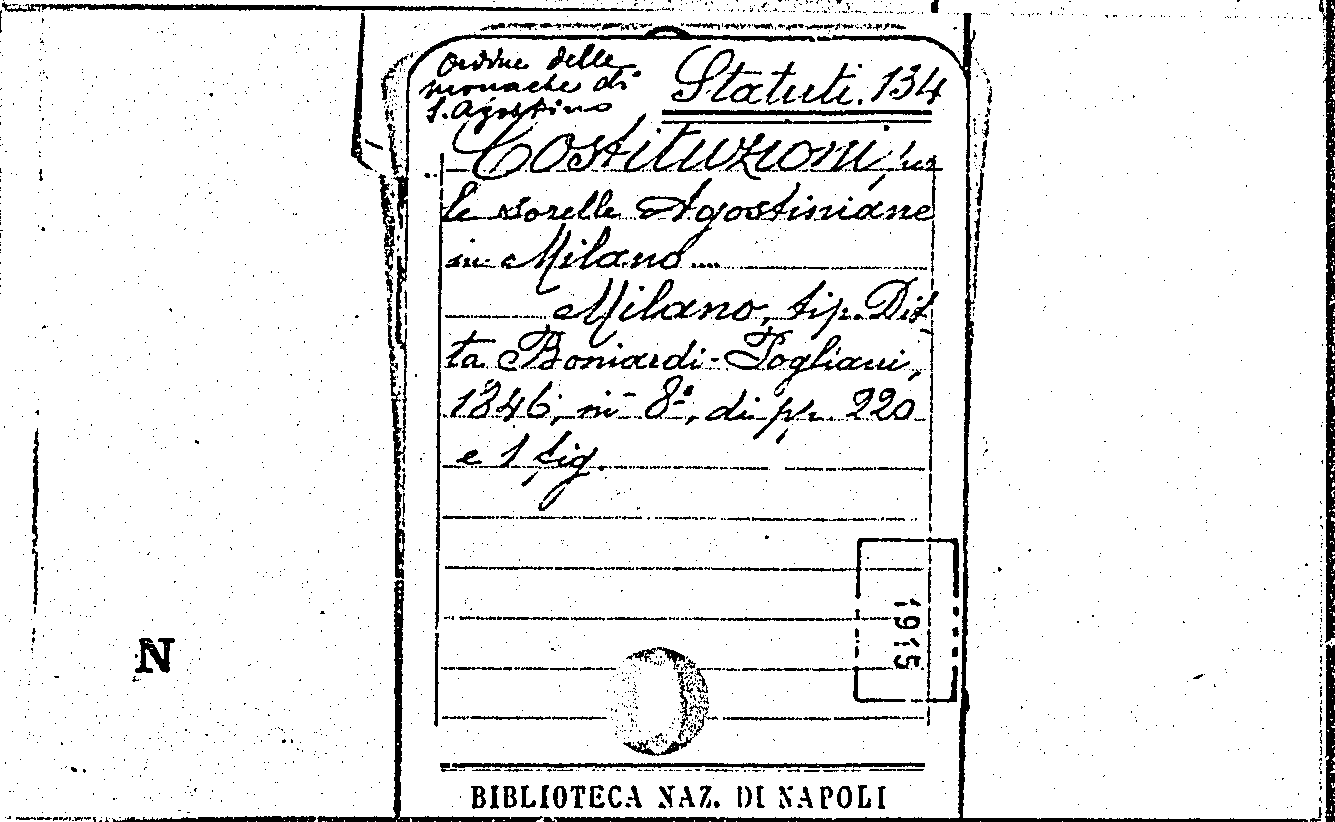 Ordine delle
monache di
S. Agostino
Statuti. 134
Costituzioni,
le sorelle Agostiniane
in Milano....
Milano, tip. Dit
ta Boniardi-Pogliani,
1846, in 8º, di pp. 220
e 1 fig.
1915
N
BIBLIOTECA NAZ. DI NAPOLI